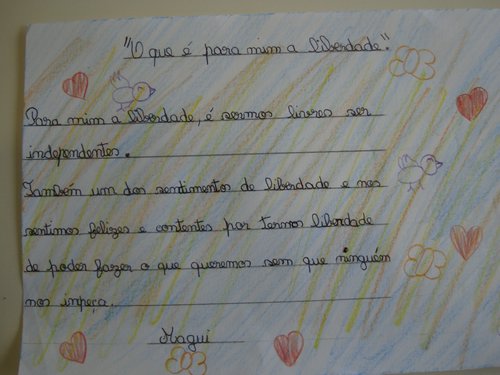 "O que é para mim a liberdade."
Para mim a liberdade, é sermos livres ser
independentes.
Também um dos sentimentos de liberdade e nos
sentimos felizes e contentes por termos liberdade
de poder fazer o que queremos sem que ninguém
nos impeça.
Magui